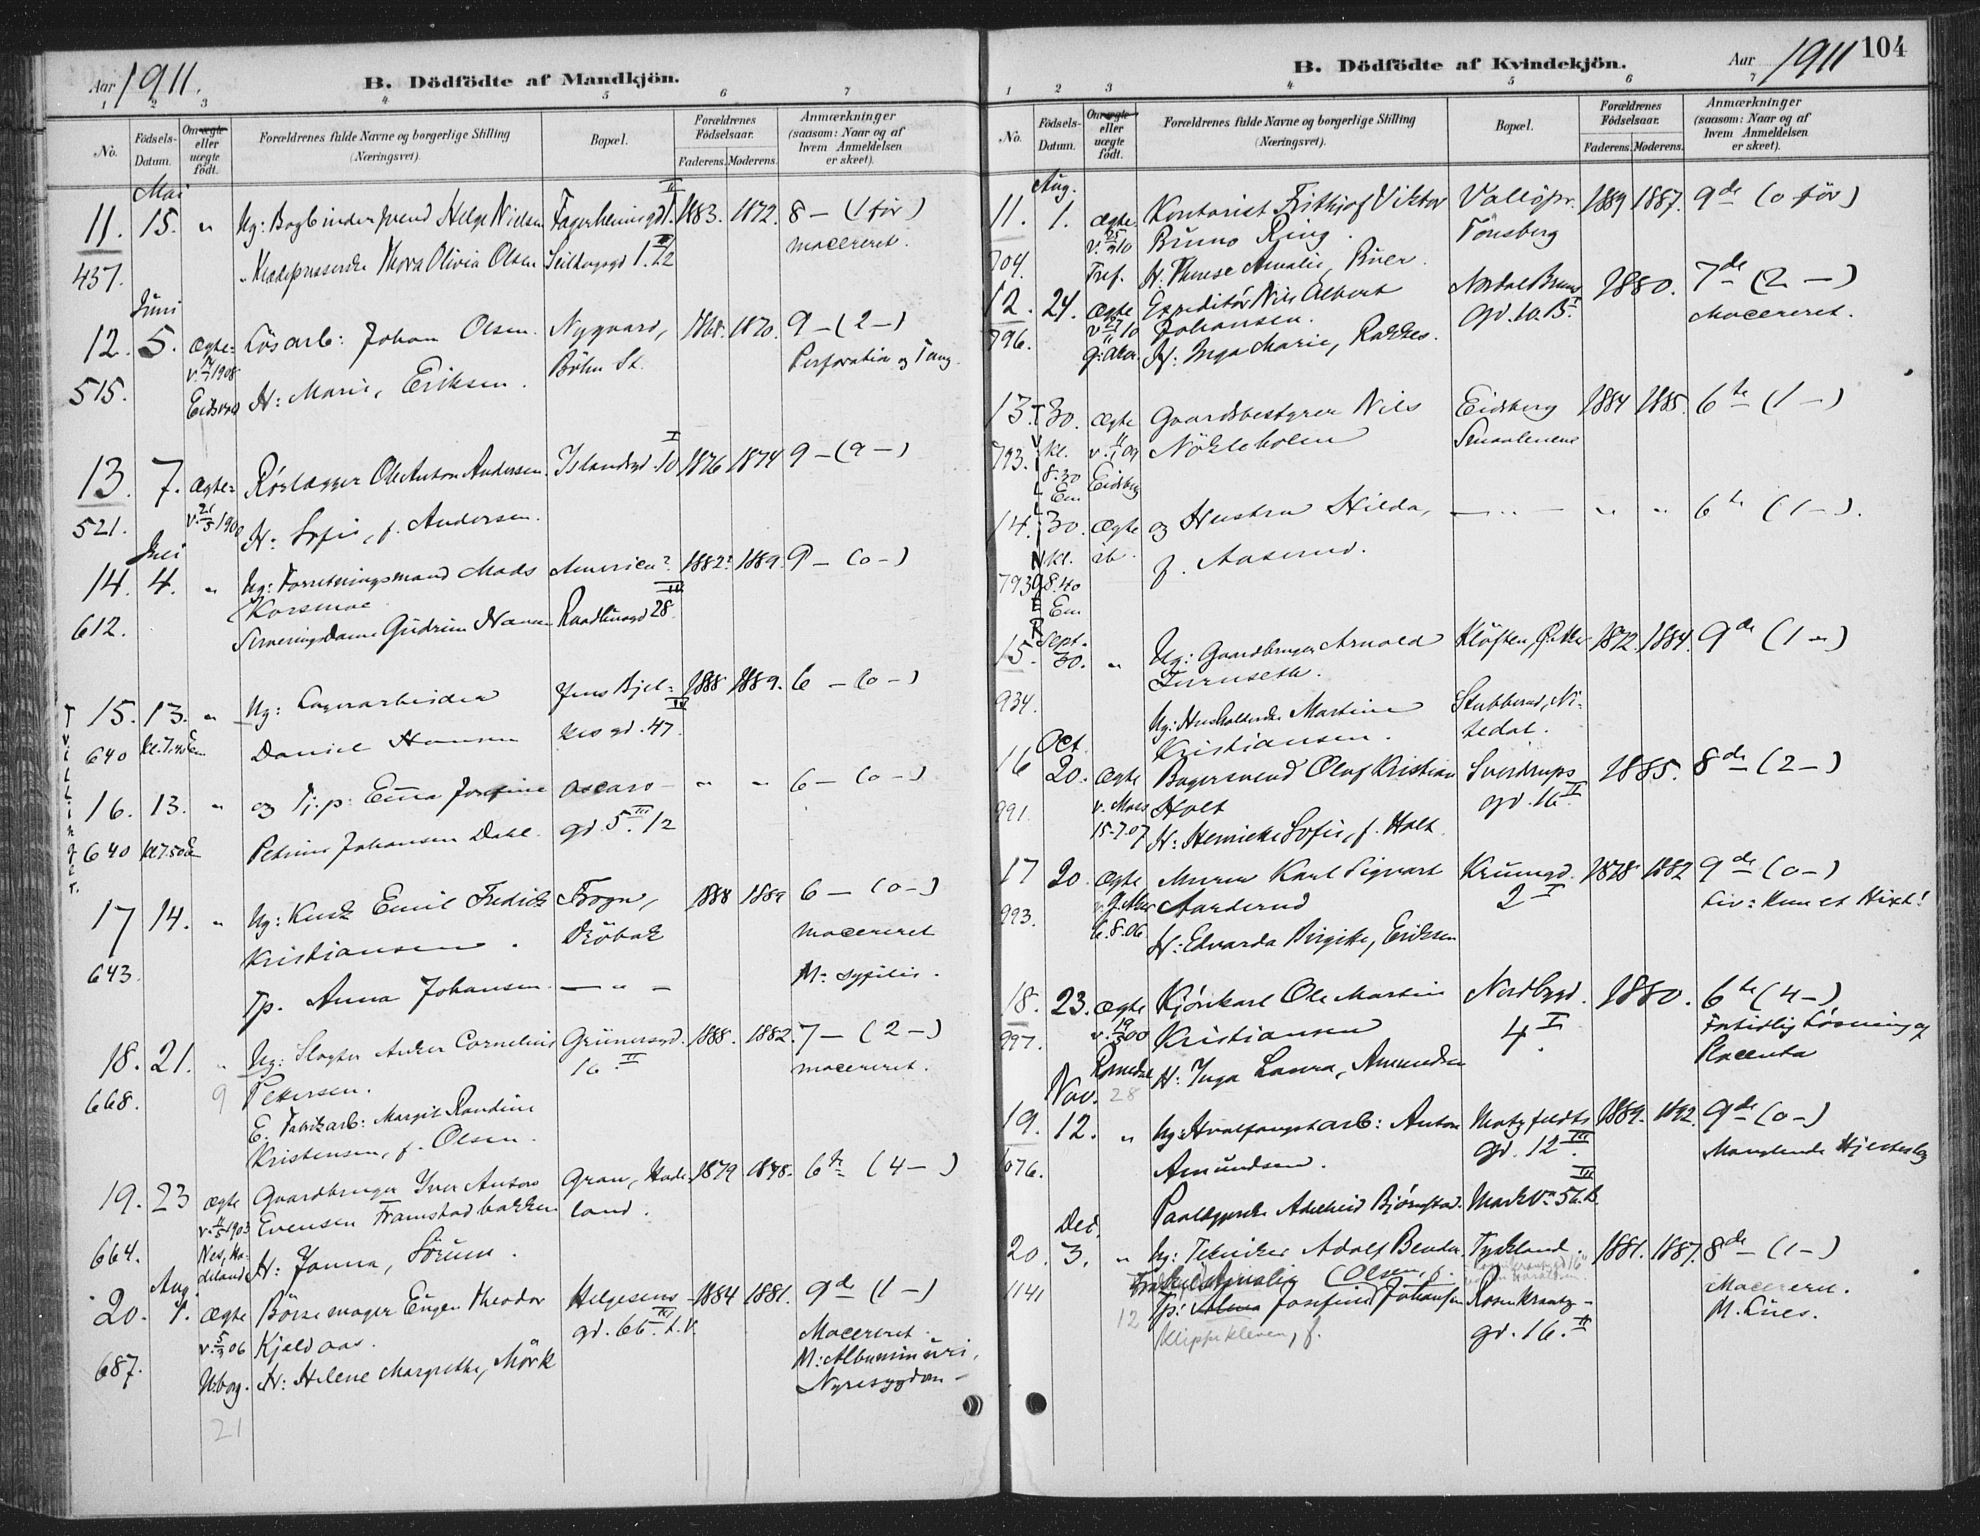 Aar 1911.
B. Dödfödte af Mandkjön.
1 2 3 4 5 6 7
No.
Födsels-Datum.
Om ægte eller uægte født.
Forældrenes fulde Navne og borgerlige Stilling
(Næringsvei).
Bopæl.
Forældrenes Fødselsaar.
Faderens. Moderens.
Anmærkninger
(saasom: Naar og af
hvem Anmeldelsen
er skeet).
Mai
11. 15. " Ug: Bogbindersvend Helge Nielsen Fagerheimsgd 1. II 1883. 1872. 8 — (1 før)
437. Thora Olivia Olsen Seilduksgd macereret.
Juni
12. 5. Ægte: Løsarb: Johan Olsen. Nygaard, 1868. 1870. 9 — (2 —)
v. 1908 Bøhn St. Perforatio og Tang.
515. Eidsvold H: Marie, Eriksen.
13. 7. Ægte: Rørlægger Ole Anton Andersen. Islandsgd. 10 I 1876 1874 9 — (9 —)
521. v. 21/5 1900 H: Sofie, f. Andersen.
Juli
14. 4. " Ug: Forretningsmand Mads America? 1882? 1889. 9 — (0 —)
Korsmoe.
612. Serveringsdame Gudrun Hansen Raadhusgd 28. III
Tvillinger.
15. 13. " Ug: Lagerarbeider Jens Bjel- 1888 1889. 6 — (0 —)
640 kl. 7.40 Em Daniel Hansen kes gd. 47. III
16. 13. " og Tj.p: Emma Josefine Oscars- " " 6 — (0 —)
640 kl 7.50 Em Petrine Johansen Dahl. gd. 5 III 1/2
17 14. " Ug: Kusk Emil Fredrik Frogn, 1888 1889 6 — (0 —)
Kristiansen. Drøbak macereret
643. Tp. Anna Johansen. — " — M: syfilis.
18. 21. " Ug: Slagter Anker Cornelius Grünersgd. 1888. 1882. 7 — (2 —)
9 Petersen. 16 II macereret.
668. E. Fabrikarb: Margit Randine
Kristensen, f. Olsen.
19. 23 Ægte Gaardbruger Iver Anton Gran, Hade- 1879 1878. 6te (4 —)
1903 Evensen Framstadbakken land.
664. Nes, Hadeland H: Janna, Sørum.
Aug.
20. 1. Ægte Børsemager Eugen Theodor Helgesens 1884 1881. 9de (1 —)
v. 5/3 06 Kjeldaas. gd. 66 IV t.v. Macereret.
687. H: Helene Margrethe, Mörk M: Albuminuri,
Nyresygdom —
21
104
Aar 1911
B. Dödfödte af Kvindekjön.
1 2 3 4 5 6 7
No.
Födsels-Datum.
Om ægte eller uægte født.
Forældrenes fulde Navne og borgerlige Stilling
(Næringsvei).
Bopæl.
Forældrenes Fødselsaar.
Faderens. Moderens.
Anmærkninger
(saasom: Naar og af
hvem Anmeldelsen
er skeet).
Aug.
11. 1. Ægte Kontorist Frithjof Viktor Vallöpr. 1889 1887. 9de (0 før)
v. 25/9 10 Bruno Ring. Tönsberg
704. Tref. H. Therese Amalie, Buer.
12. 24. Ægte Expeditör Nils Albert Nordal Bruns 1880. 7de (2 —)
Johansen. gd. 10. B. I Macereret.
796. H: Inga Marie, Rakkes.
TVILLINGER
13. 30. Ægte Gaardsbestyrer Nils Eidsberg 1884 1885. 6te (1 —)
793. kl. 8.30 Em v. 09 Eidsberg Nökleholm Smaalenene
14. 30. Ægte og Hustru Hilda, — " — " " 6te (1 —).
793 kl. 8.40 Em ib. f. Aaserud.
Sept.
15. 30. " Ug: Gaardbruger Arnold Kløften, 1872. 1884. 9de (1 —)
Furuseth.
934. Ug: Husholderske Martine Stubberud, Ni-
Kristiansen. tedal.
Oct.
16 20. Ægte Bagersvend Olaf Kristian Sverdrups 1885. 8de (2 —)
991. v. Moss Holt gd. 16 II
15-7.07 H: Henrikke Sofie, f. Holt.
17 20. Ægte Murer Karl Sigvart Krumgd. 1878. 1882 9de (0 —)
993. Aarderud 2 I Liv: kun et Hixt!
6.8.06 H: Edvarda Birgitte, Eriksen
18. 23. Ægte Kjørekarl Ole Martin Nordbygd. 1880. 6te (4 —)
997. v. 19/3 00 Kristiansen 4 I Fortidlig Løsning af
Romedal H: Inga Laura, Amundsen Placenta
Nov. 28
19. 12. " Ug: Hvalfangstarb: Anton Motzfeldts 1889. 1892. 9de (0 —)
1076. Amundsen. gd. 12 III Manglende Hjerteslag
Adelheid Björnstad. Markv. 56 B. III
Dec.
20. 3. " Ug: Tekniker Adolf Bender. Tyskland. 1881. 1887. 8de (1 —)
1141 (Olsen, f. Macereret.
12 Tp: Alma Josefine Johansen Rosenkrantz- M. Lues.
Klippekleven, f. gd. 16. II